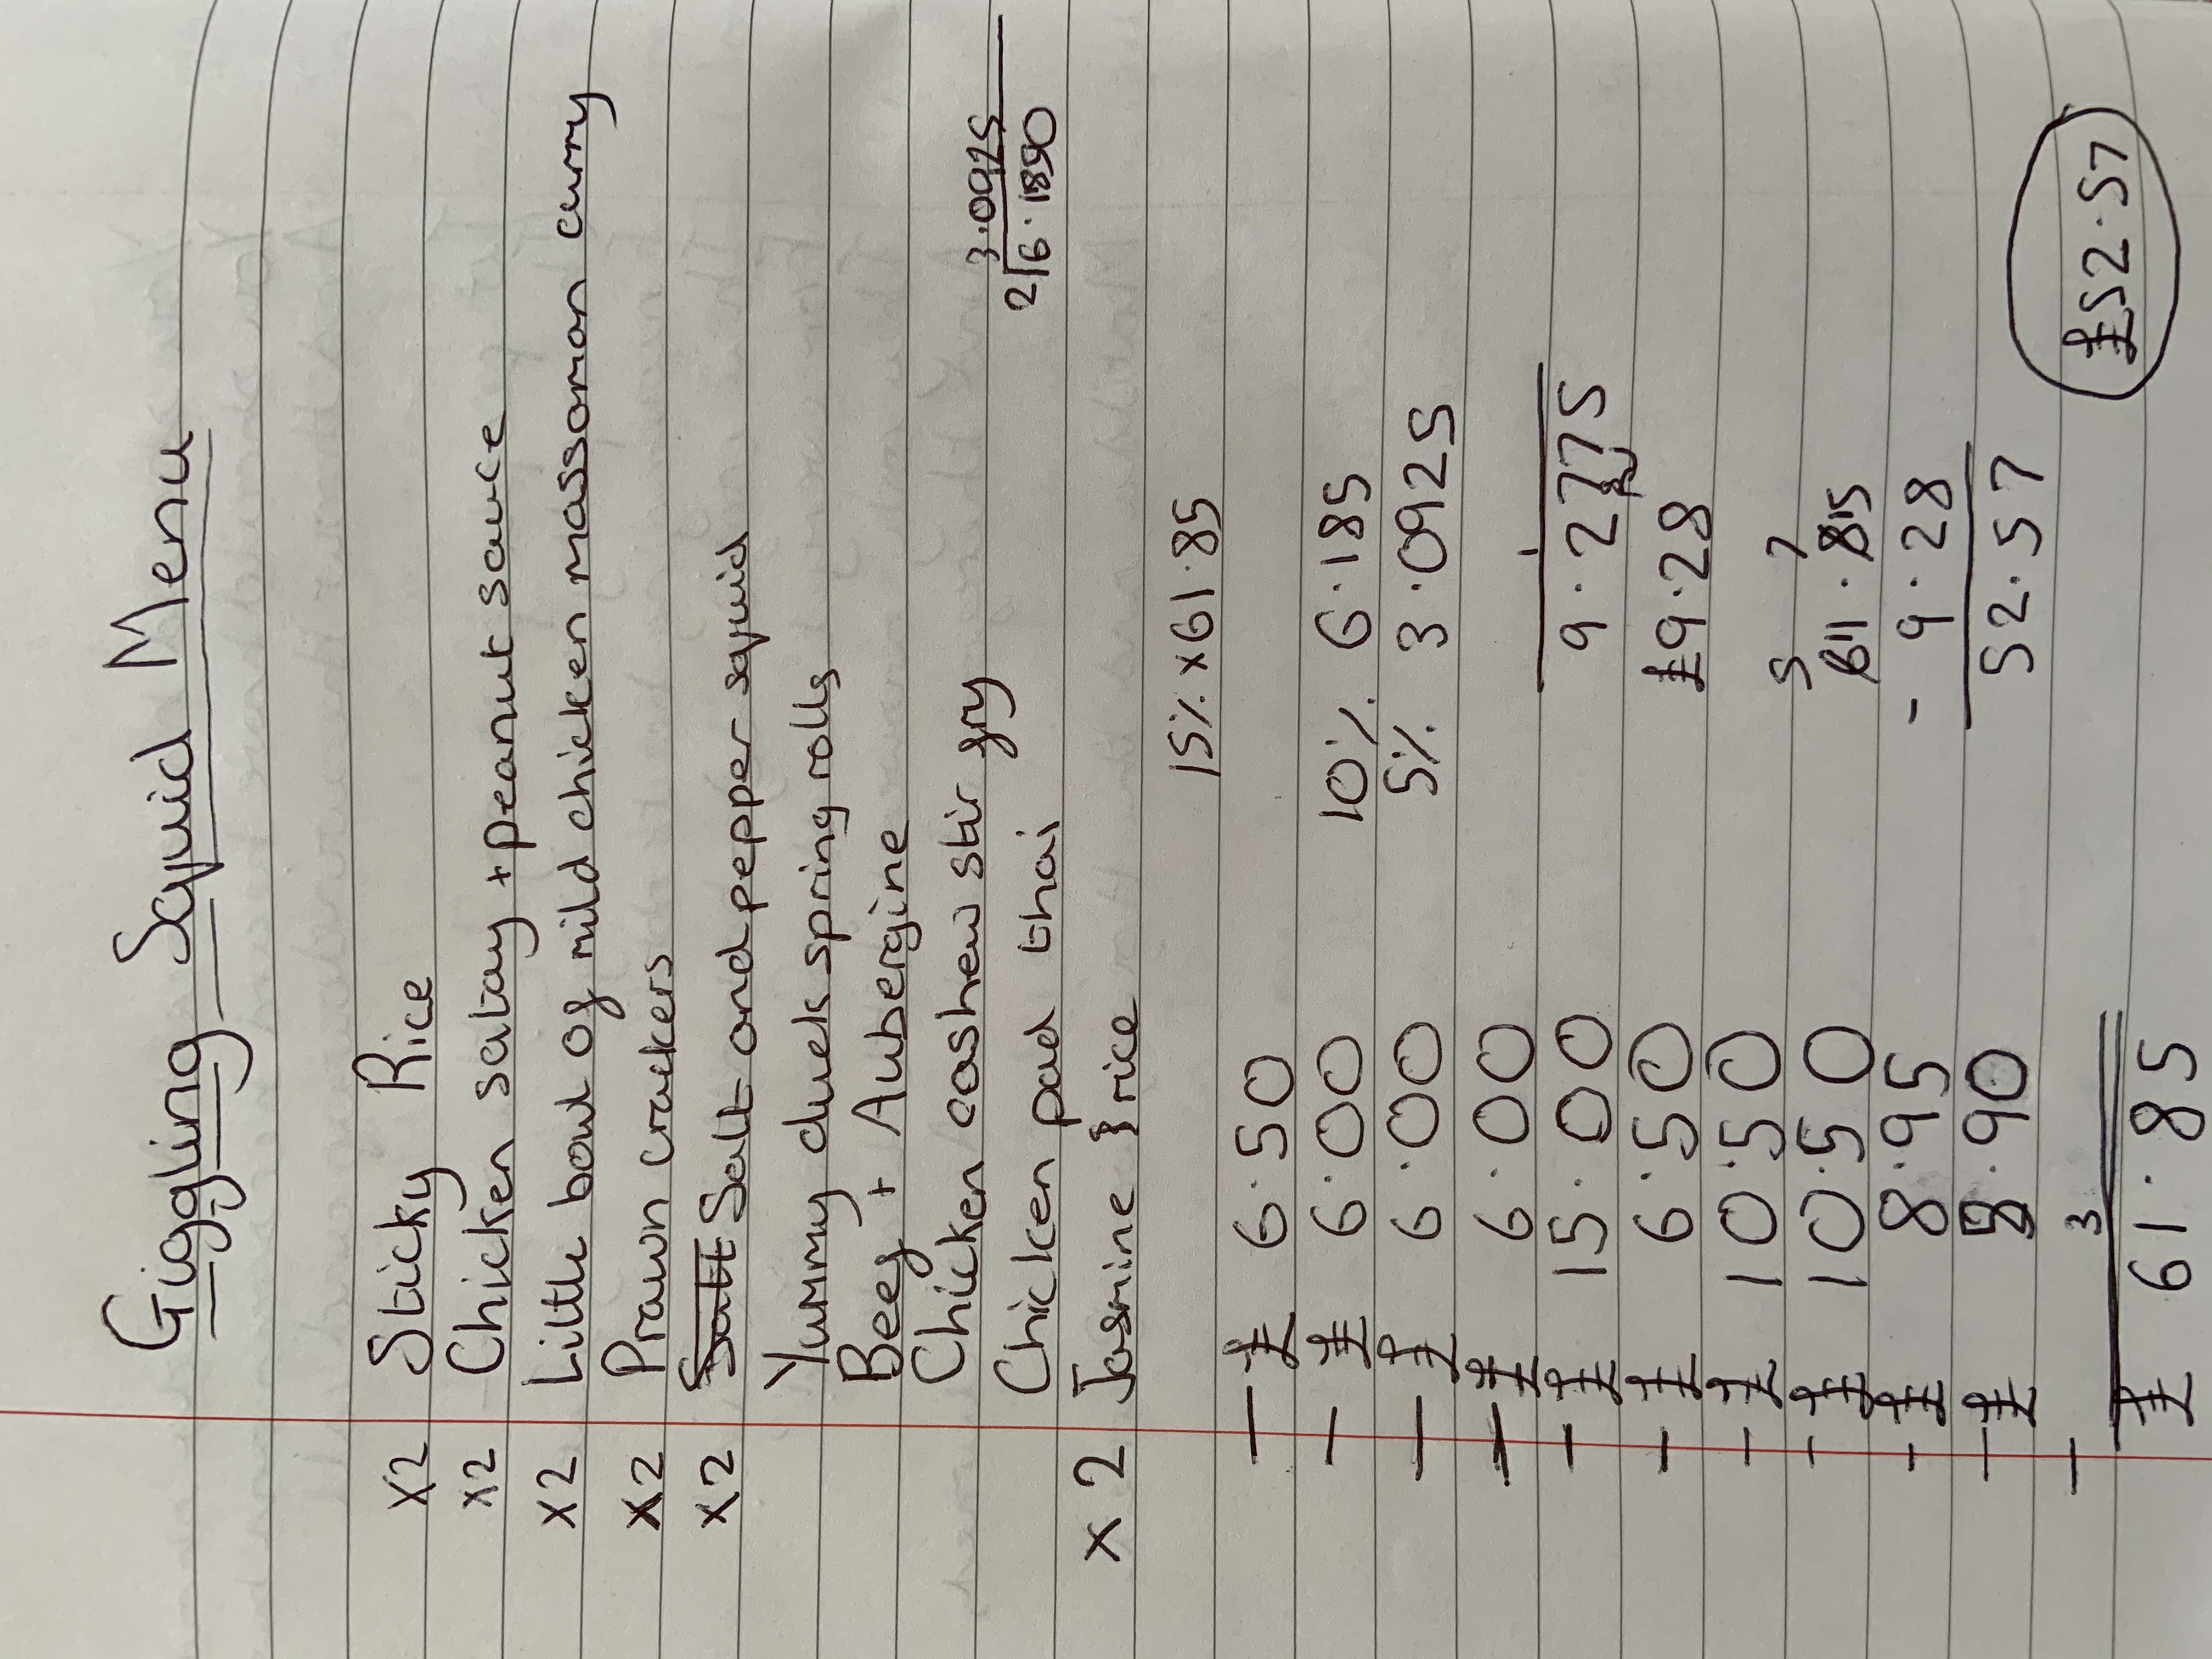 Giggling Squid Menu
x2 Sticky Rice
x2 Chicken satay + peanut sauce
x2 Little bowl of mild chicken massaman curry
x2 Prawn crackers
x2 Salt Salt and pepper squid
Yummy duck spring rolls
Beef + Aubergine
Chicken cashew stir fry
3.0925
Chicken pad thai
2 6.1850
x2 Jasmine rice
15% x 61.85
- £ 6.50
- £ 6.00 10% 6.185
- £ 6.00 5% 3.0925
- £ 6.00
- £ 15.00 9.2775
- £ 6.50 £9.28
- £ 10.50 5 7
- £ 10.50 611.815
- £ 8.95 - 9.28
- £ .90 52.57
- 3
£ 61.85 £52.57